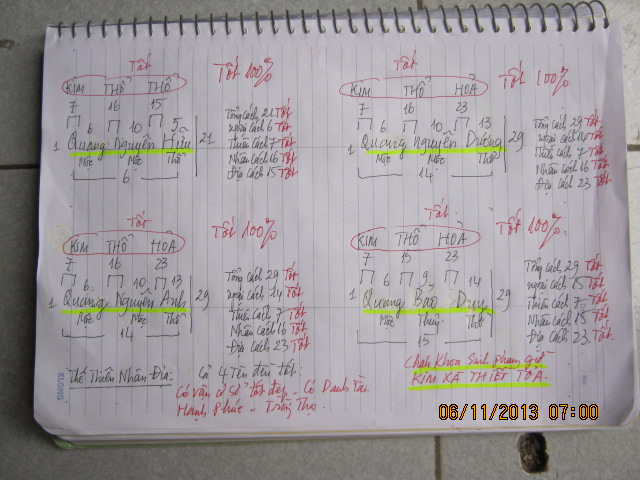 Tốt
KIM THỔ THỔ Tốt 100%
7 16 15
6 10 5
1 Quang Nguyễn Hữu 21
Mộc Mộc Thổ
6
Tổng cách 21 Tốt
ngoại cách 6 Tốt
Thiên cách 7 Tốt
Nhân cách 16 Tốt
Địa cách 15 Tốt
Tốt
KIM THỔ HOẢ Tốt 100%
7 16 23
6 10 13
1 Quang nguyên Dương 29
Mộc Mộc Thổ
14
Tổng cách 29 Tốt
ngoại cách Tốt
Thiên cách 7 Tốt
Nhân cách 16 Tốt
Địa cách 23 Tốt
Tốt
KIM THỔ HOẢ Tốt 100%
7 16 23
6 10 13
1 Quang Nguyên Anh 29
Mộc Mộc Thổ
14
Tổng cách 29 Tốt
ngoại cách 14 Tốt
Thiên cách 7 Tốt
Nhân cách 16 Tốt
Địa cách 23 Tốt
Tốt
KIM THỔ HOẢ Tốt 100%
7 15 23
6 9 14
1 Quang Bảo Duy 29
Mộc Thủy Thổ
15
Tổng cách 29 Tốt
ngoại cách 15 Tốt
Thiên cách 7 Tốt
Nhân cách 15 Tốt
Địa cách 23 Tốt
Thế Thiên Nhân Địa. Cả 4 Tên đều tốt.
Có vận cơ sở tốt đẹp - Có Danh Tài
Hạnh phúc - Trường Thọ.
Cháu Khoa Sinh phạm giờ
KIM XÀ THIẾT TỎA.
KLONG
06/11/2013 07:00